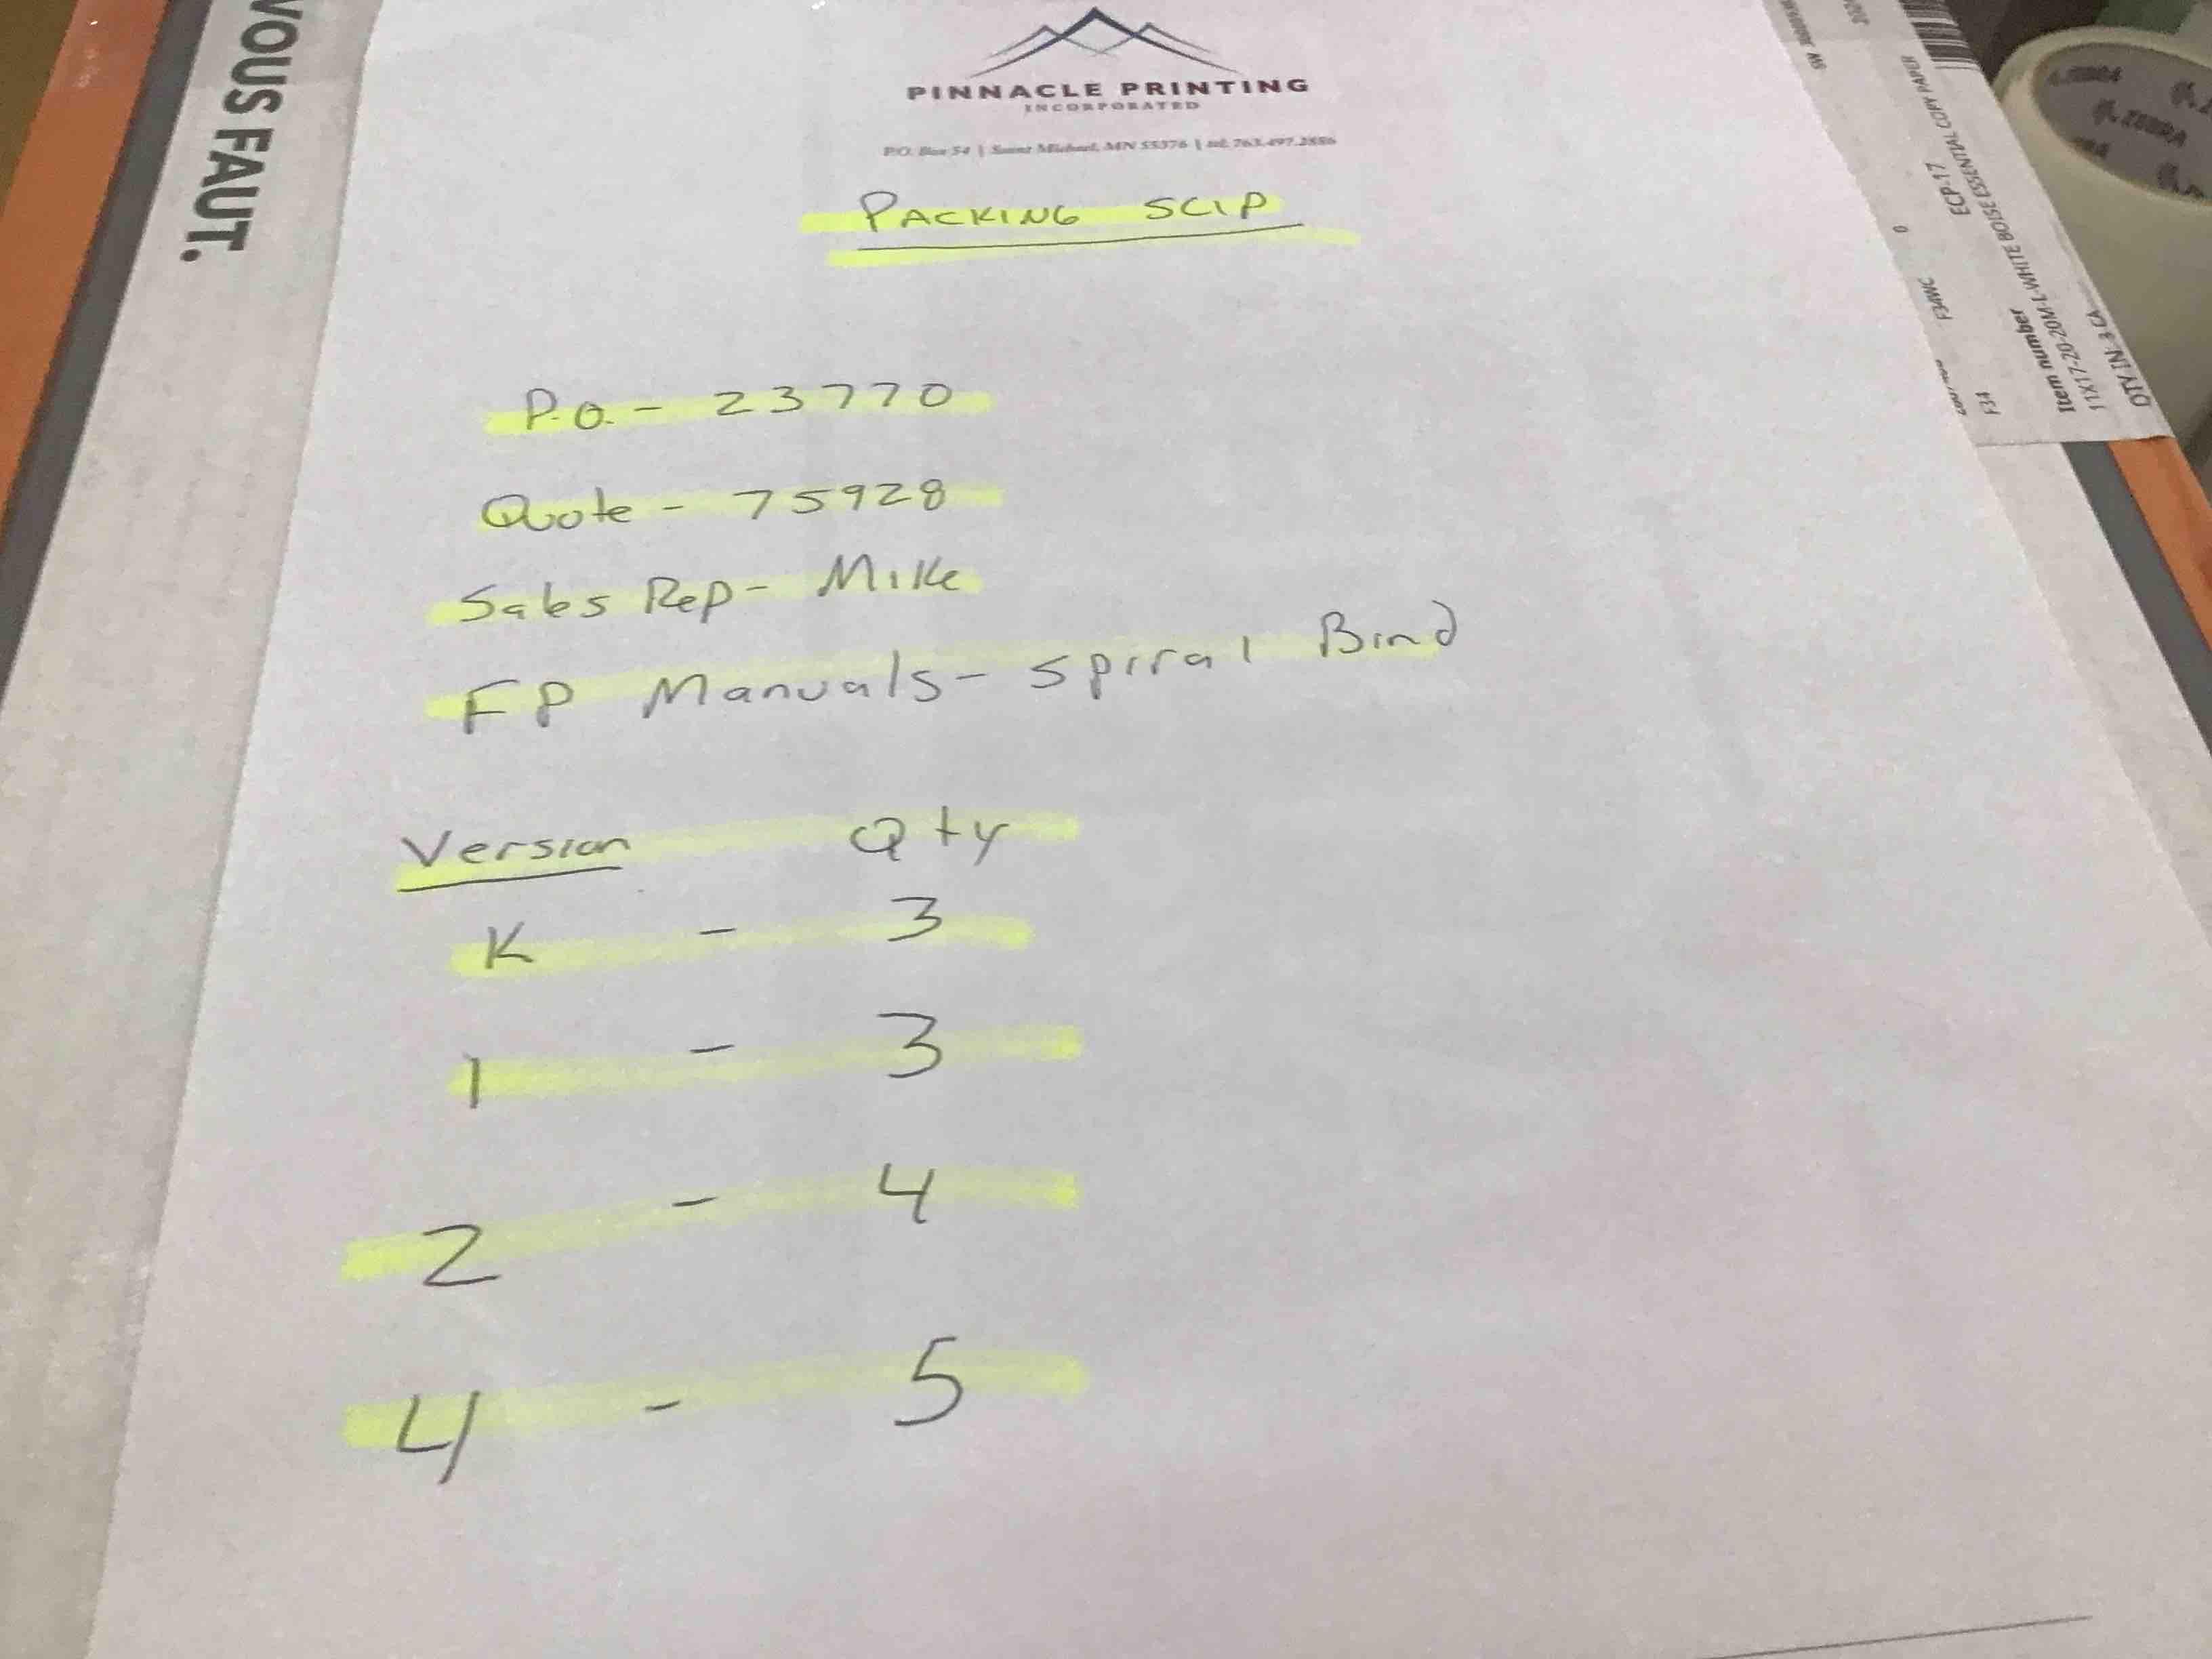 VOUS FAUT.
PINNACLE PRINTING
INCORPORATED
P.O. Box 54 | Saint Michael, MN 55376 | tel: 763.497.2886
PACKING SLIP
P.O. - 23770
Quote - 75928
Sales Rep - Mike
FP Manuals - Spiral Bind
Version Qty
K - 3
1 - 3
2 - 4
4 - 5
ECP-17 0
WHITE BOISE ESSENTIAL COPY PAPER
F34WC
F34
Item number
11X17-20-20M-L-
QTY IN. 3 CA
ZEBRA
ZEBRA